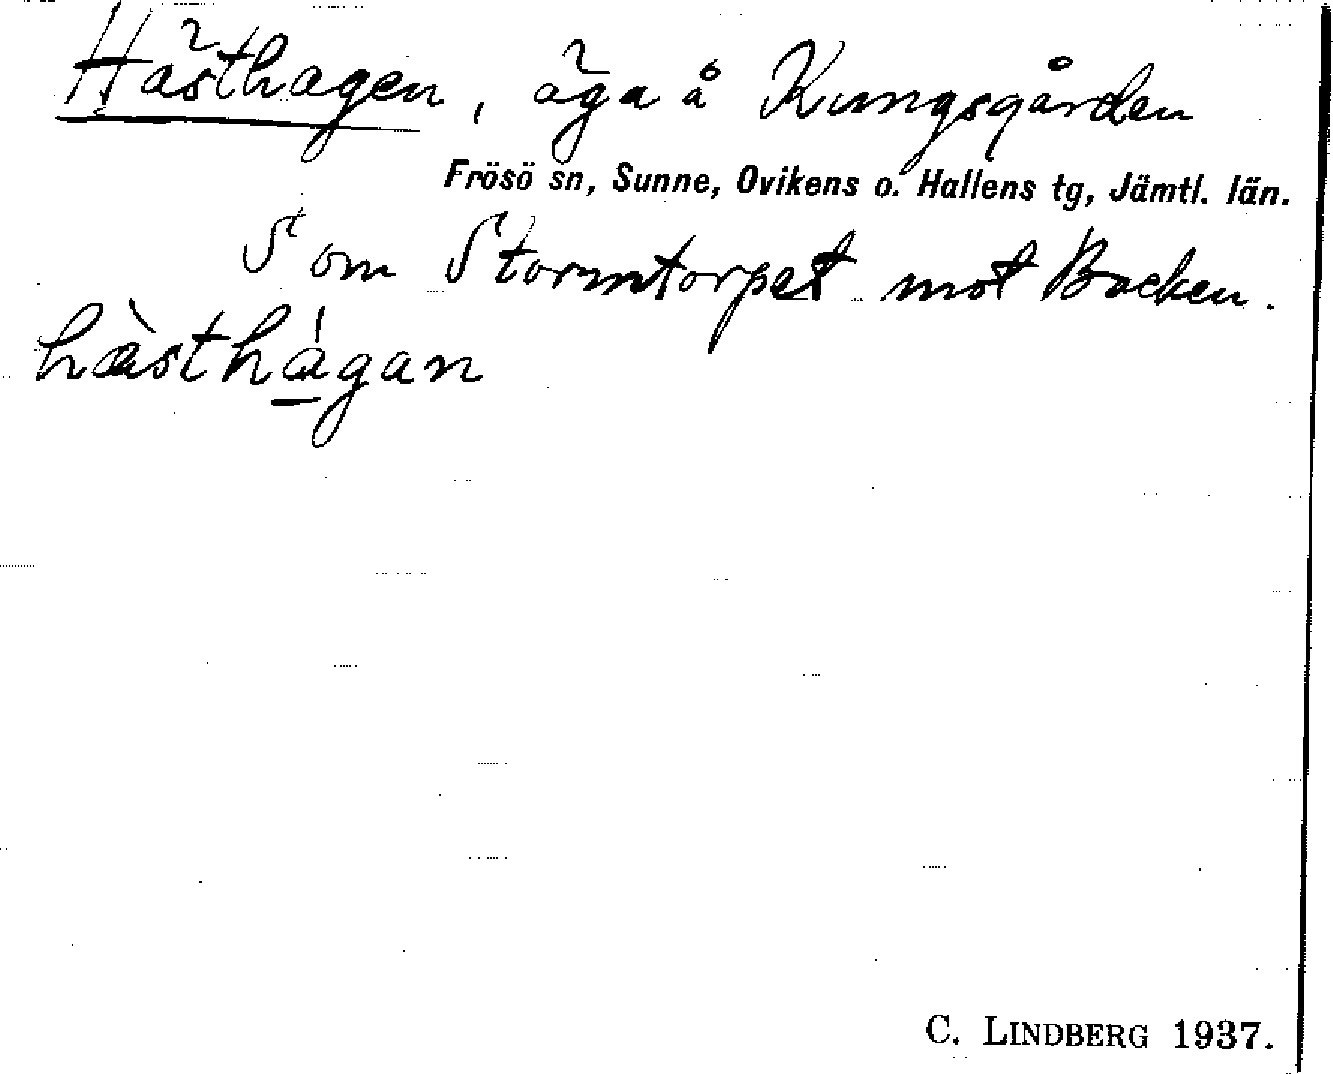 Hästhagen, äga å Kungsgården
Frösö sn, Sunne, Ovikens o. Hallens tg, Jämtl. län.
S om Stormtorpet mot Backen.
hæ̀sthág̱an
C. LINDBERG 1937.